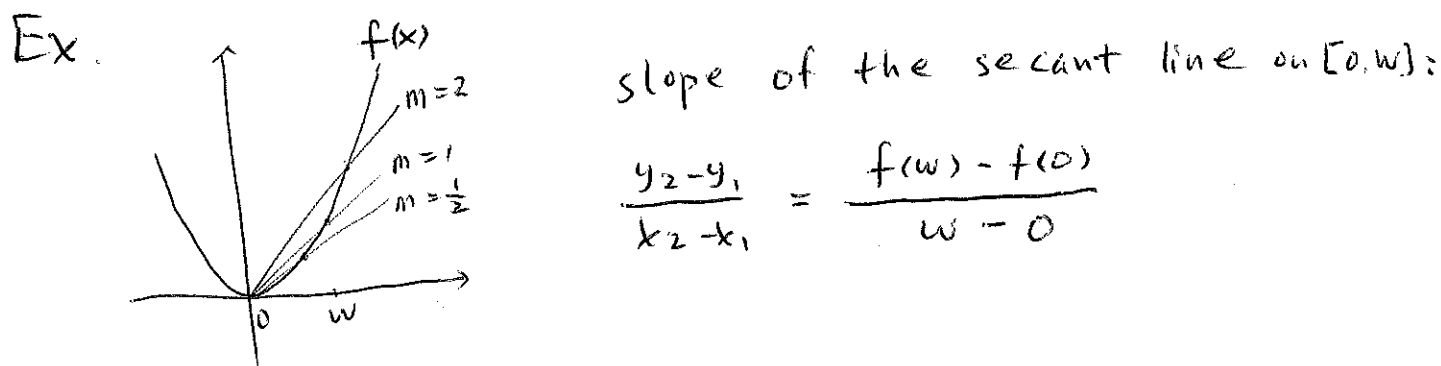 Ex.
f(x)
m=2
m=1
m=1/2
0
w
slope of the secant line on [0,w]:
y₂-y₁/x₂-x₁ = f(w) - f(0)/w - 0